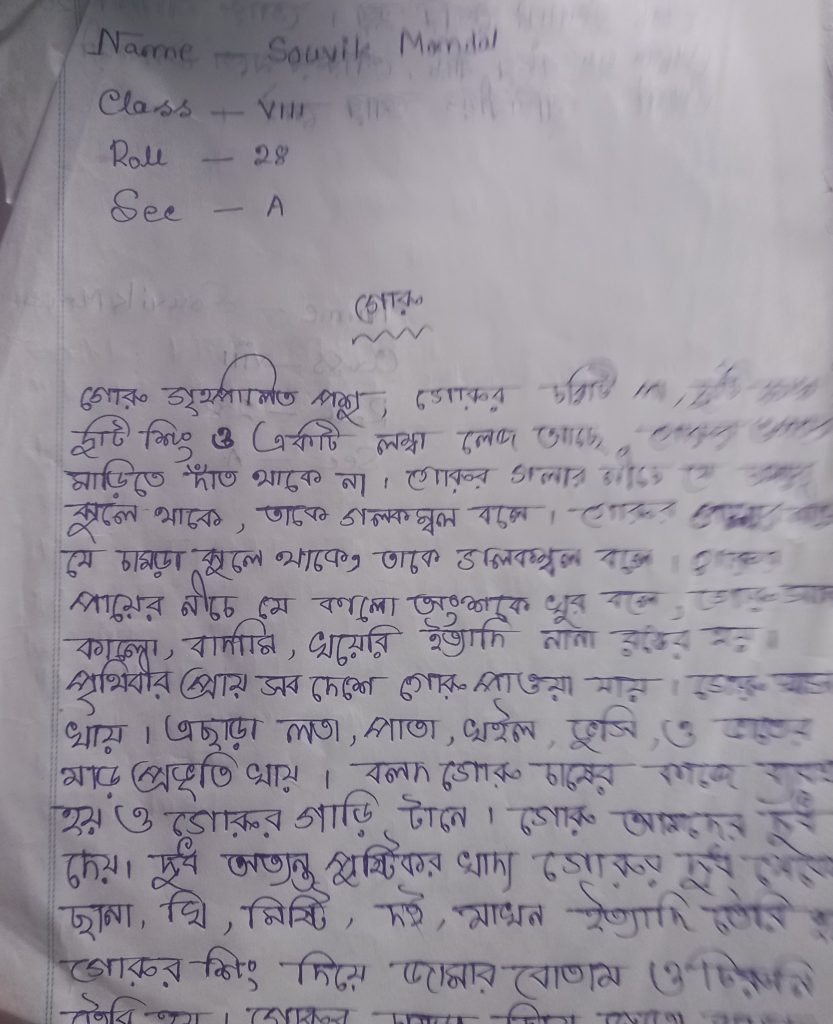 Name - Souvik Mondal
Class - VIII
Roll - 28
Sec - A
গোরু
গোরু গৃহপালিত পশু, গোরুর চারটি পা, দুটি
দুটি শিং ও একটি লম্বা লেজ আছে।
মাড়িতে দাঁত থাকে না। গোরুর গলার নীচে যে
ঝুলে থাকে, তাকে গলকম্বল বলে। গোরুর
যে চামড়া ঝুলে থাকে, তাকে গলকম্বল বলে।
পায়ের নীচে যে কালো অংশকে খুর বলে,
কালো, বাদামি, খয়েরি ইত্যাদি নানা রঙের হয়।
পৃথিবীর প্রায় সব দেশে গোরু পাওয়া যায়। গোরু
খায়। এছাড়া লতা, পাতা, খইল, ভুসি, ও ভাতের
মাড় প্রভৃতি খায়। বলদ গোরু চাষের কাজে
হয় ও গোরুর গাড়ি টানে। গোরু আমাদের দুধ
দেয়। দুধ অত্যন্ত পুষ্টিকর খাদ্য গোরুর দুধ থেকে
ছানা, ঘি, মিষ্টি, দই, মাখন ইত্যাদি তৈরি
গোরুর শিং দিয়ে জামার বোতাম ও চিরুনি
তৈরি হয়। গোরুর চামড়া দিয়ে